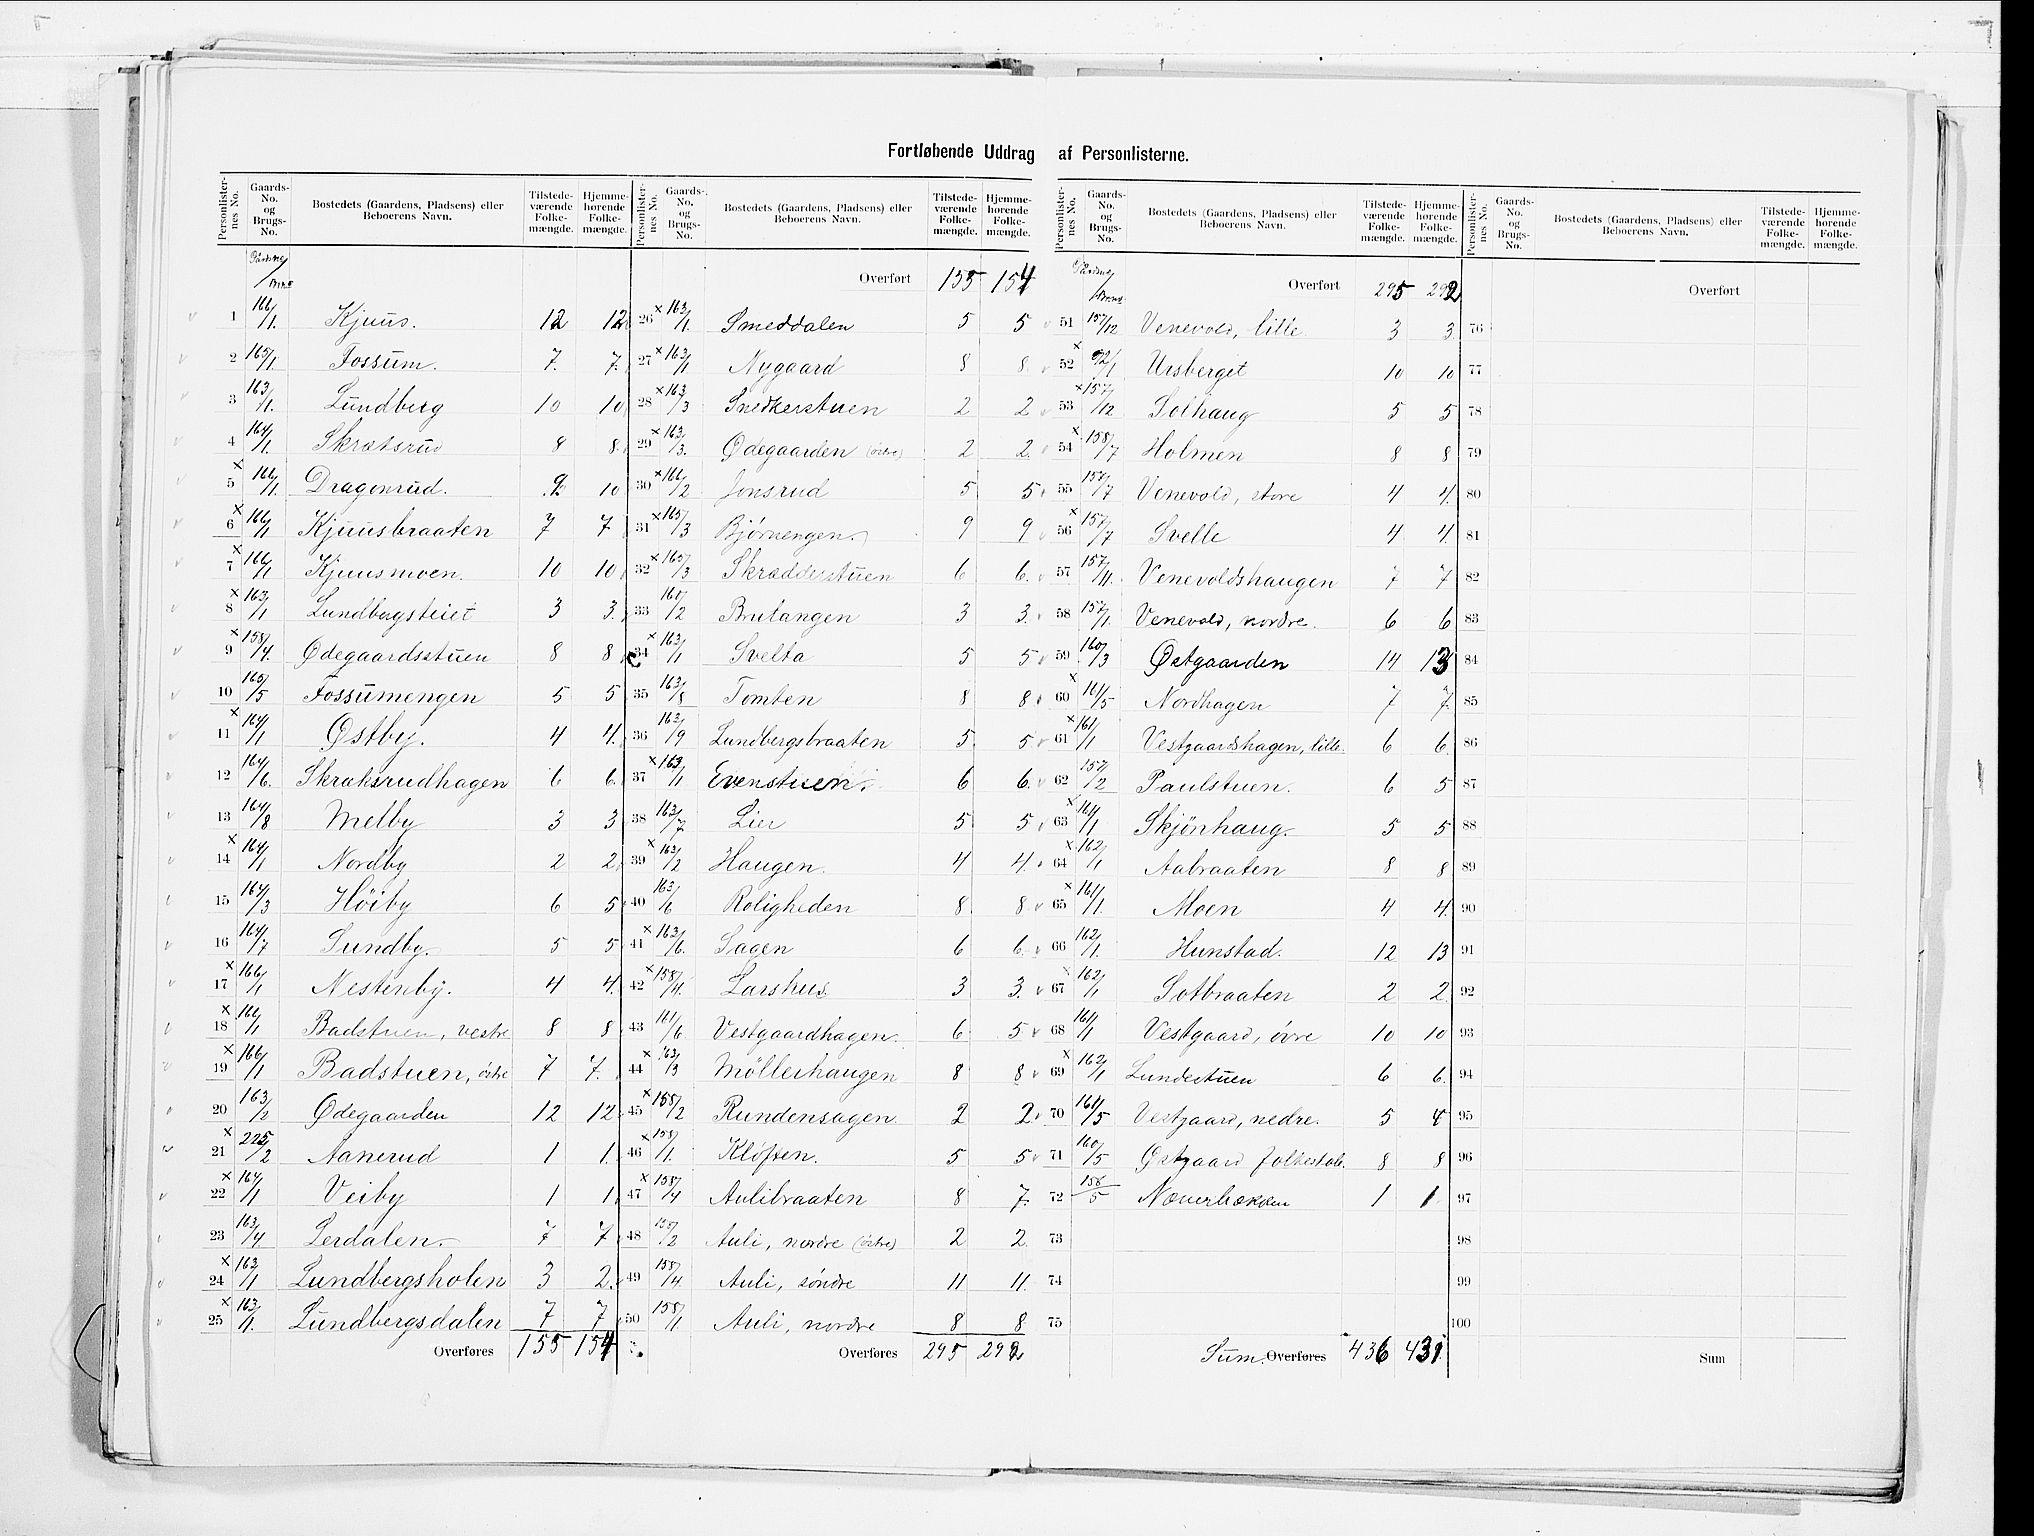 Fortløbende Uddrag af Personlisterne.
Personlisternes No. | Gaards-No. og Brugs-No. | Bostedets (Gaardens, Pladsens) eller Beboerens Navn. | Tilstedeværende Folkemængde. | Hjemmehørende Folkemængde.
1 166/1. Kjuus. 12 12
2 165/1. Fossum. 7. 7.
3 163/1. Lundberg 10 10
4 164/1. Skratsrud 8 8.
x 5 166/1. Dragonrud. 9 10
x 6 166/1 Kjuusbraaten 7 7
x 7 166/1 Kjuusmoen. 10 10
x 8 163/1 Lundbergsteiet 3 3.
x 9 158/4. Ødegaardsstuen 8 8
10 165/5 Fossumengen 5 5
x 11 164/1 Østby. 4 4.
12 164/6. Skratsrudhagen 6 6
13 164/8 Melby 3 3
x 14 164/1 Nordby 2 2
15 164/3 Höiby 6 5
16 164/7 Sundby. 5 5
x 17 166/1 Nestenby. 4 4.
x 18 166/1 Badstuen, vestre 8 8
x 19 166/1 Badstuen, östre 7 7.
20 163/2 Ødegaarden 12 12
x 21 225/2 Aanerud 1 1.
x 22 164/1 Veiby 1 1
23 163/4 Lerdalen. 7 7
x 24 163/1 Lundbergsholen 3 2.
x 25 163/1. Lundbergsdalen 7 7
Overføres 155 154
Overført 155 154
26 x 163/1. Smeddalen 5 5
27 x 163/1 Nygaard 8 8
28 x 163/3 Snedkerstuen 2 2
29 x 163/3. Ødegaarden (östre) 2 2.
30 x 166/2 Jonsrud 5 5
31 x 165/3 Bjørnengen. 9 9
32 x 165/3 Skrædderstuen 6 6.
33 160/2 Brutangen 3 3.
34 x 163/1 Svelta 5 5
35 163/8 Tomten 8 8
36 163/9 Lundbergsbraaten 5. 5
37 x 163/1 Evenstuen. 6 6.
38 163/7 Lier 5 5
39 x 163/2 Haugen. 4 4.
40 163/6 Roligheden 8. 8
41 x 163/6. Sagen 6 6.
42 x 158/4. Larshus. 3 3.
43 161/6 Vestgaardhagen. 6 5
44 x 163/3 Möllerhaugen 8 8
45 x 158/2 Rundensagen. 2 2.
46 x 158/1. Klöften. 5 5
47 x 158/4 Aulibraaten 8 7.
48 158/2 Auli, nordre (östre) 2 2.
49 158/4. Auli, söndre 11 11.
50 158/1 Auli, nordre 8 8
Overføres 295 292
Overført 295 292
51 157/12 Venevold, lille 3 3.
x 52 92/1 Ursberget 10 10
53 x 157/12 Solhaug 5 5
x 54 158/7 Holmen 8 8
55 157/7 Venevold, store 4 4.
x 56 157/7 Svelle 4 4
57 157/11. Venevoldshaugen 7 7
58 157/1. Venevold, nordre. 6 6
59 160/3 Østgaarden 14 13
x 60 161/5 Nordhagen 7 7.
61 x 161/1 Vestgaardshagen, lille. 6 6.
62 157/2 Paulstuen. 6 5
63 x 161/1 Skjönhaug. 5 5
64 x 162/1 Aabraaten 8 8
65 x 161/1. Moen 4 4.
66 162/1. Hunstad. 12 13
67 x 162/1 Sotbraaten 2 2.
68 161/1 Vestgaard, övre 10 10
69 x 162/1 Lundestuen 6 6.
70 161/5 Vestgaard, nedre. 5 4
71 160/5 Østgaard folkeskole. 8 8
72 156/5 Næverbakken 1 1
73
74
75
Sum. Overføres 436 431
Personlisternes No. | Gaards-No. og Brugs-No. | Bostedets (Gaardens, Pladsens) eller Beboerens Navn. | Tilstedeværende Folkemængde. | Hjemmehørende Folkemængde.
Overført
76
77
78
79
80
81
82
83
84
85
86
87
88
89
90
91
92
93
94
95
96
97
98
99
100
Sum